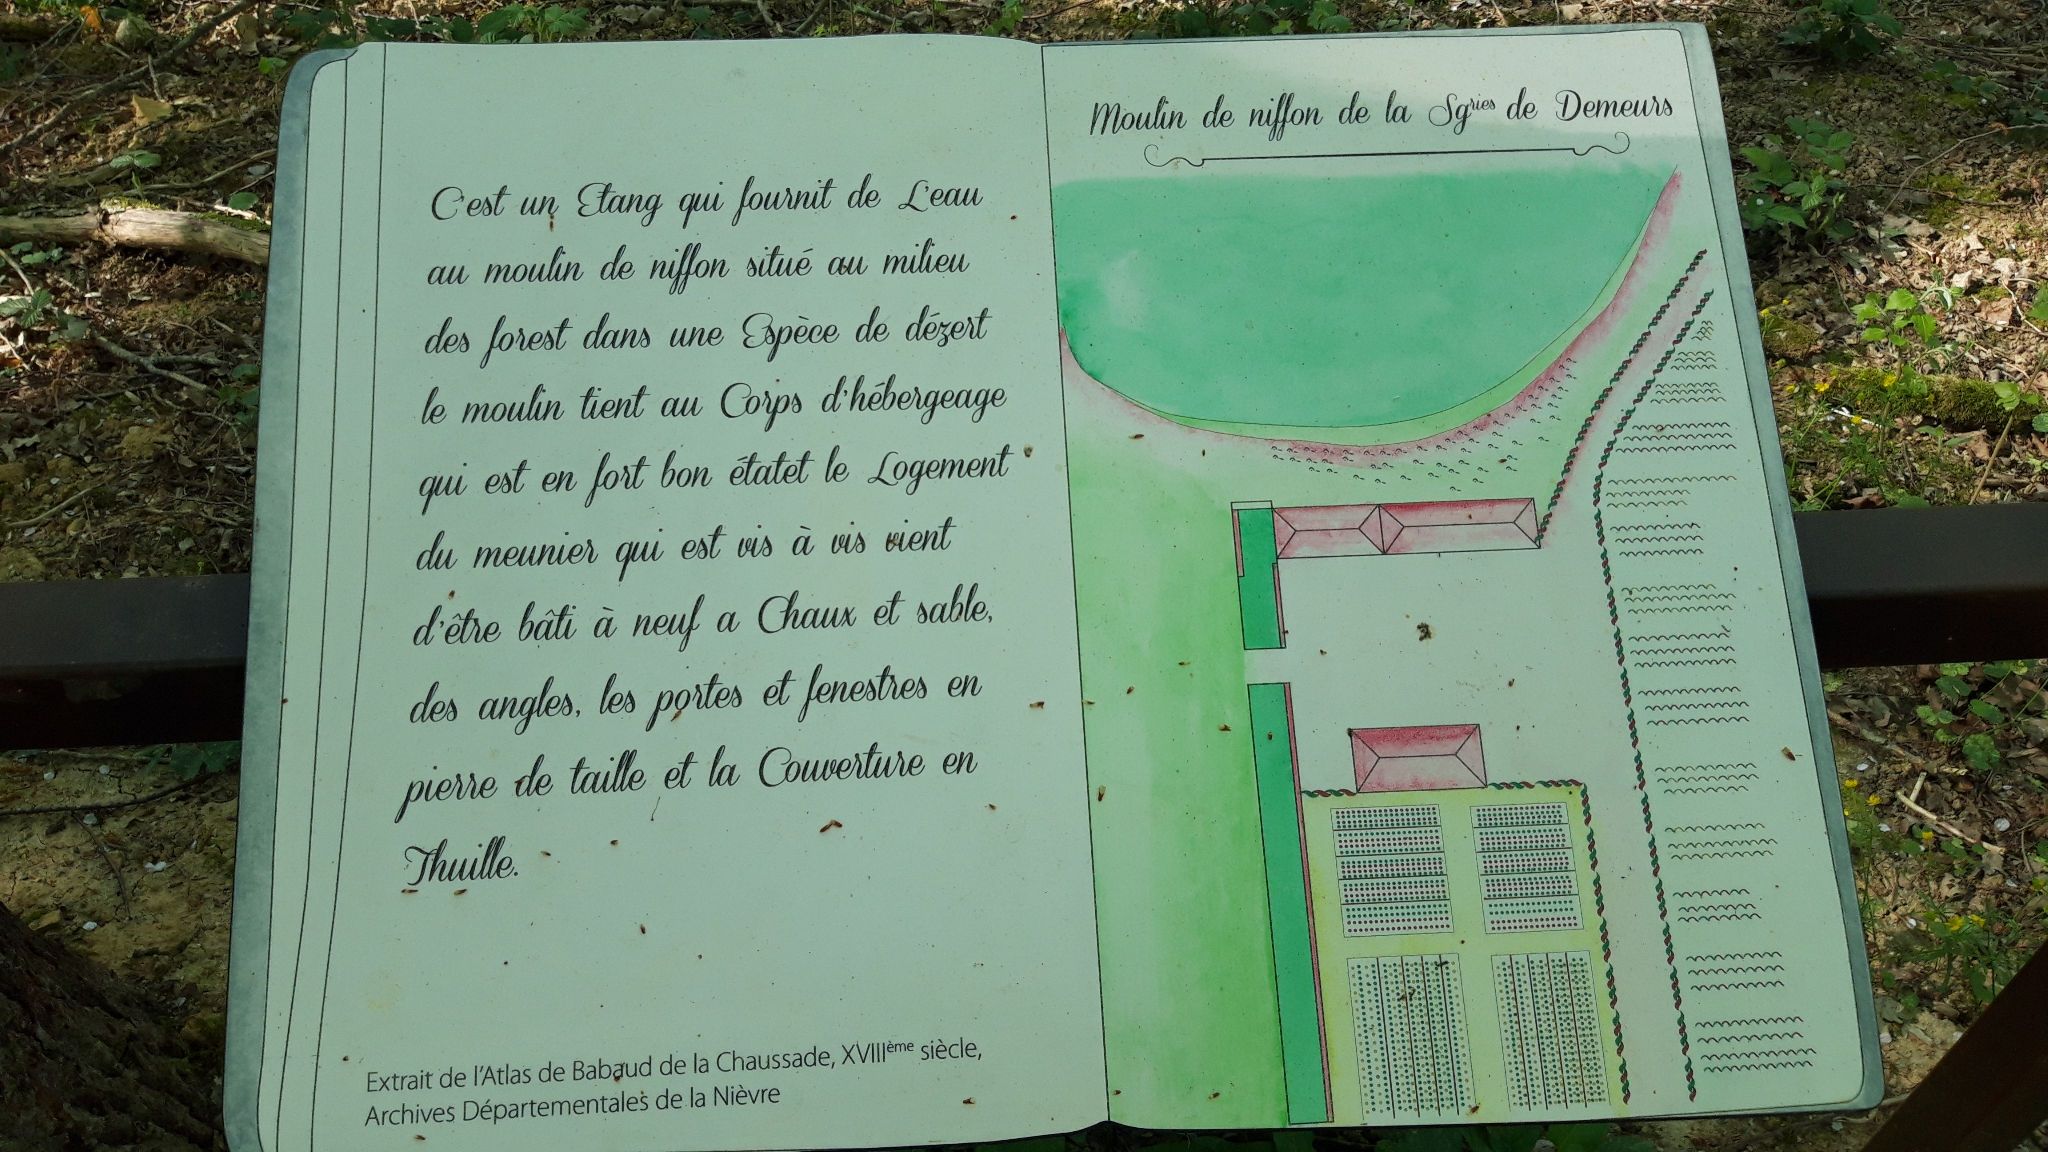 C'est un Etang qui fournit de L'eau
au moulin de niffon situé au milieu
des forest dans une Espèce de dézert
le moulin tient au Corps d'hébergeage
qui est en fort bon étatet le Logement
du meunier qui est vis à vis vient
d'être bâti à neuf a Chaux et sable,
des angles, les portes et fenestres en
pierre de taille et la Couverture en
Thuille.
Extrait de l'Atlas de Babaud de la Chaussade, XVIIIème siècle,
Archives Départementales de la Nièvre
Moulin de niffon de la Sgries de Demeurs